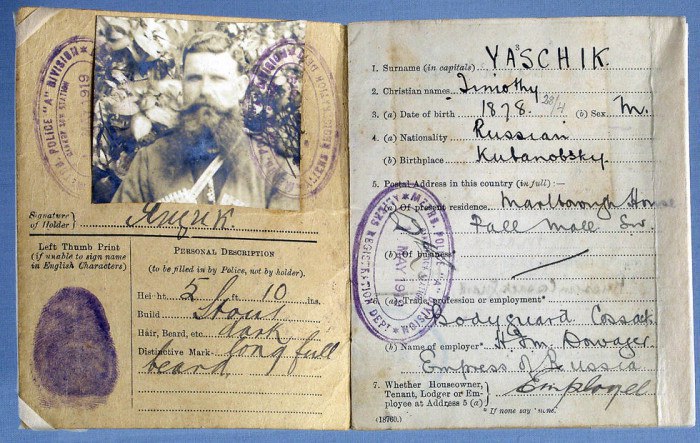 MET. POLICE "A" DIVISION
1919
Signature of Holder}
Left Thumb Print
(if unable to sign name
in English Characters)
PERSONAL DESCRIPTION
(to be filled in by Police, not by holder).
Height 5 ft. 10 ins.
Build Stout
Hair, Beard, etc. dark
Distinctive Mark long full
beard
1. Surname (in capitals) YASCHIK.
2. Christian names Timothy
3. (a) Date of birth 1878. 28/4 (b) Sex M.
4. (a) Nationality Russian
(b) Birthplace Kubanobsky.
5. Postal Address in this country (in full) :—
(a) Of present residence. Marlborough House
Pall Mall S.W.
(b) Of business*
METRO. POLICE "A" DIVISION
REGISTRATION DEPT
MAY 191
6. (a) Trade, profession or employment*
Bodyguard Cossack
(b) Name of employer* H.I.M. Dowager
Empress of Russia
7. Whether Householder, Tenant, Lodger or Employee at Address 5 (a)} Employee
* If none say "none."
(18760.)